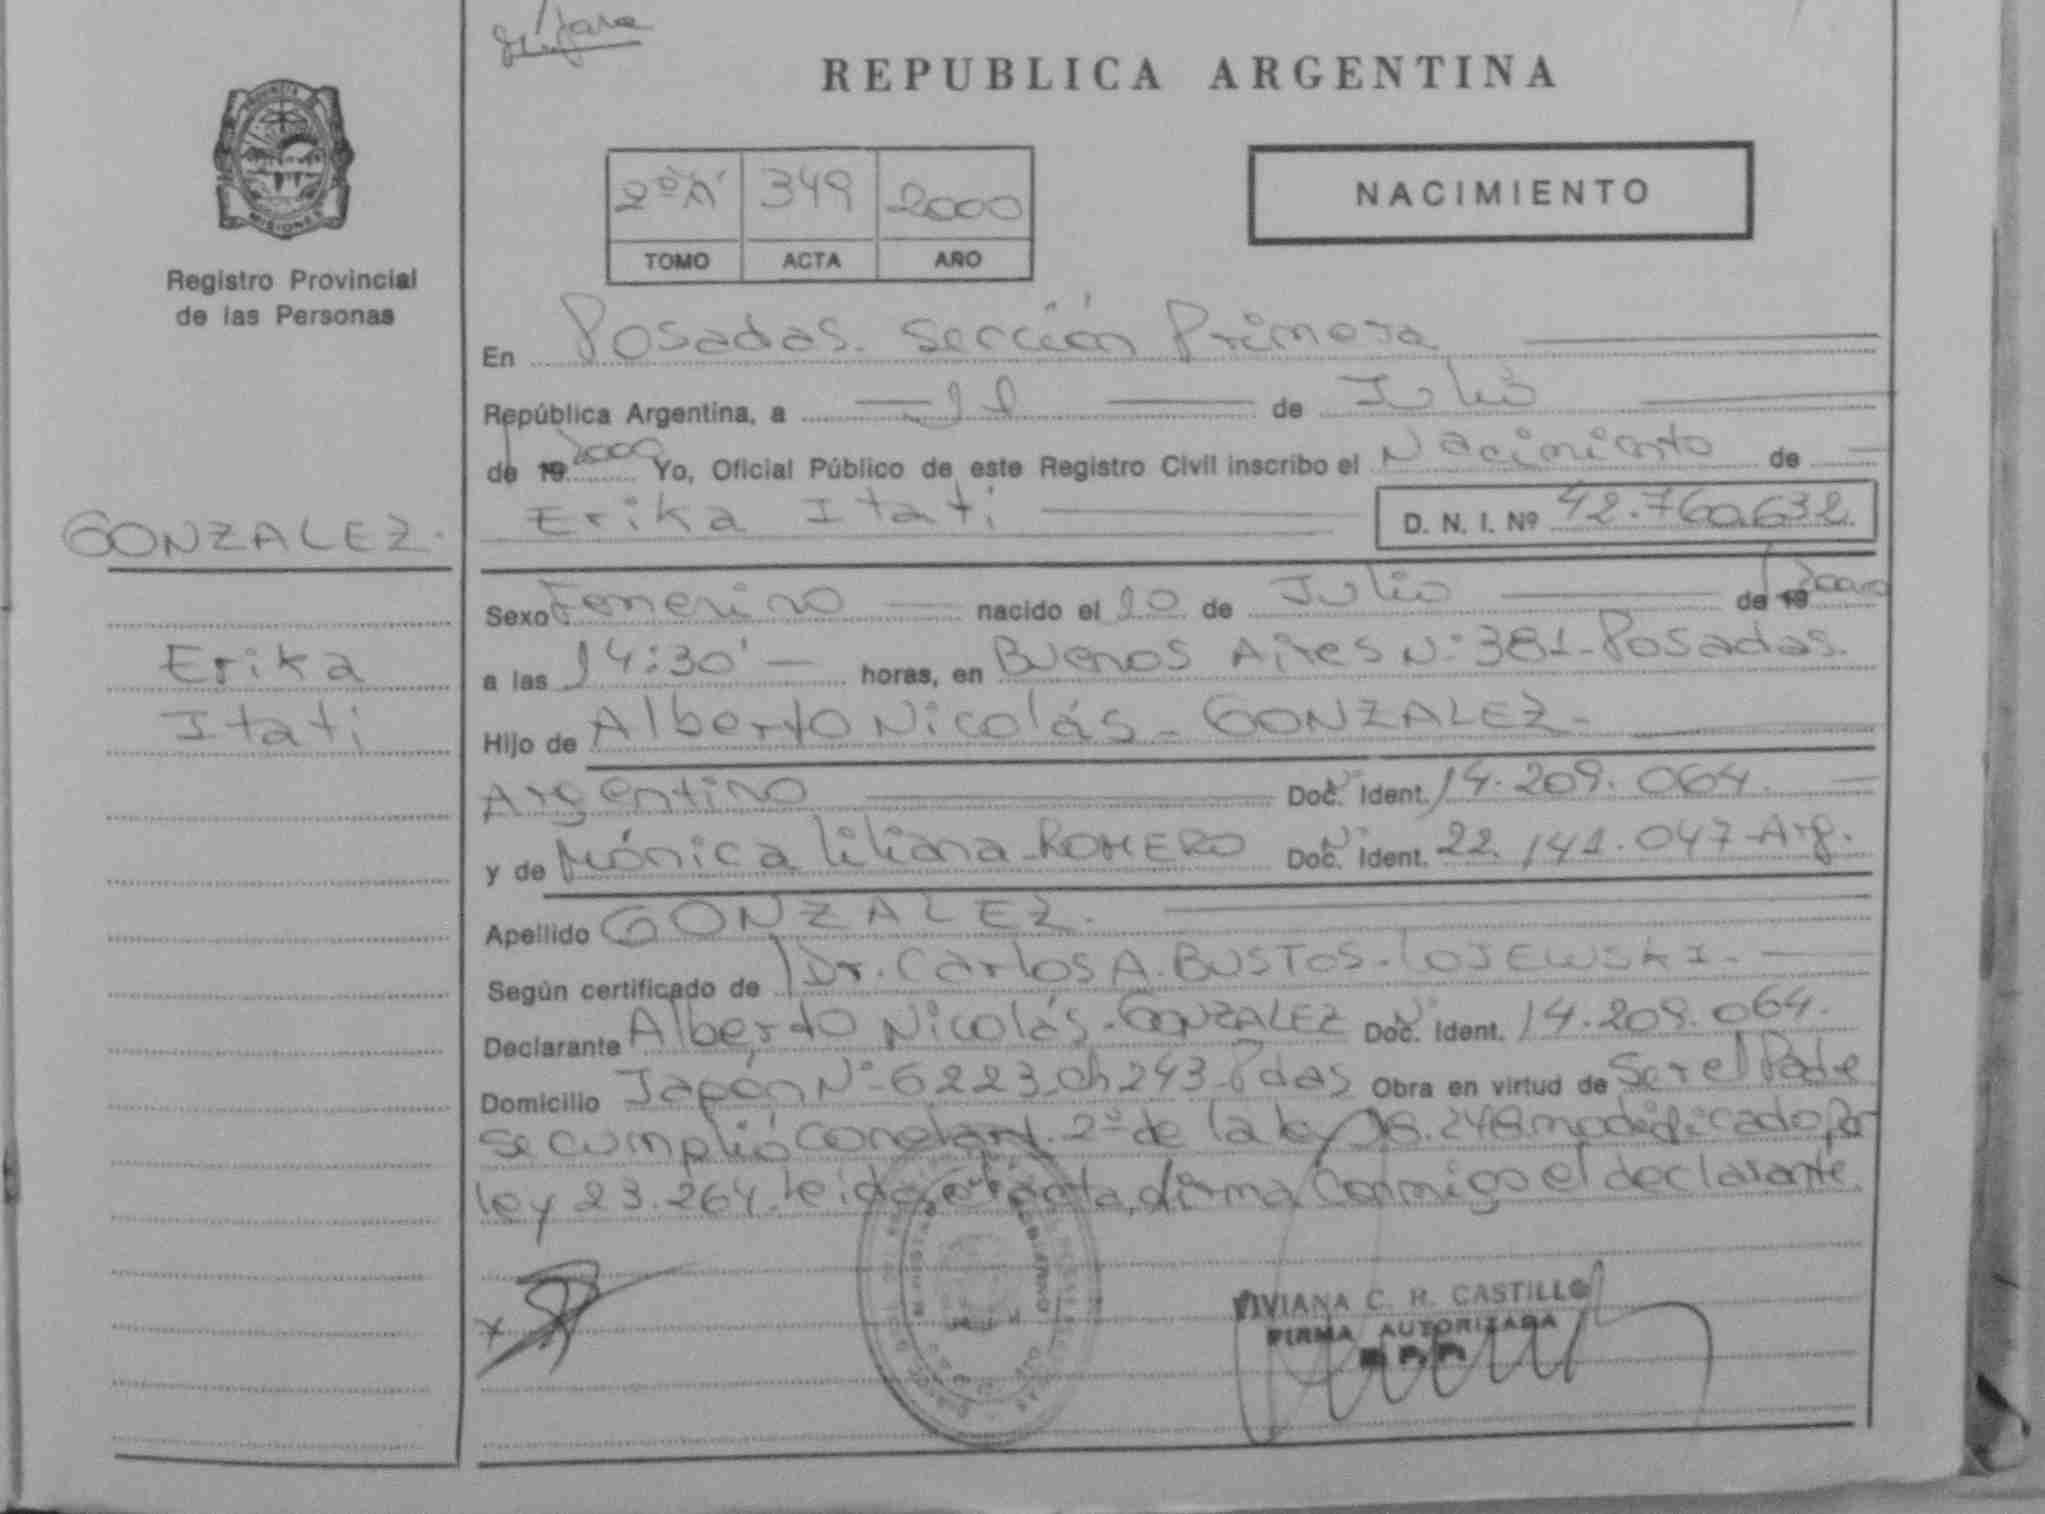 REPUBLICA ARGENTINA
PROVINCIA
MISIONES
Registro Provincial
de las Personas
2º "A" 349 2000
TOMO ACTA AÑO
NACIMIENTO
En Posadas. Sección Primera
República Argentina, a 11 de Julio
de 19 2000 Yo, Oficial Público de este Registro Civil inscribo el Nacimiento de
Erika Itati D. N. I. Nº 42.760.632
GONZALEZ.
Erika
Itati
Sexo Femenino nacido el 10 de Julio de 19 2000
a las 14:30' horas, en Buenos Aires Nº 381 - Posadas.
Hijo de Alberto Nicolás - GONZALEZ -
Argentino Doc. Ident. 14.209.064.
y de Mónica Liliana - ROMERO Doc. Ident. 22.141.047 - Arg.
Apellido GONZALEZ.
Según certificado de Dr. Carlos A. BUSTOS - LOJEWSKI -
Declarante Alberto Nicolás - GONZALEZ Doc. Ident. 14.209.064.
Domicilio Japón Nº 6223 - Ch 243 - Pdas Obra en virtud de Ser el Padre
se cumplió con el art. 2º de la ley 18.248 modificado por
ley 23.264. leida el acta, firma conmigo el declarante.
VIVIANA C. R. CASTILLO
FIRMA AUTORIZADA